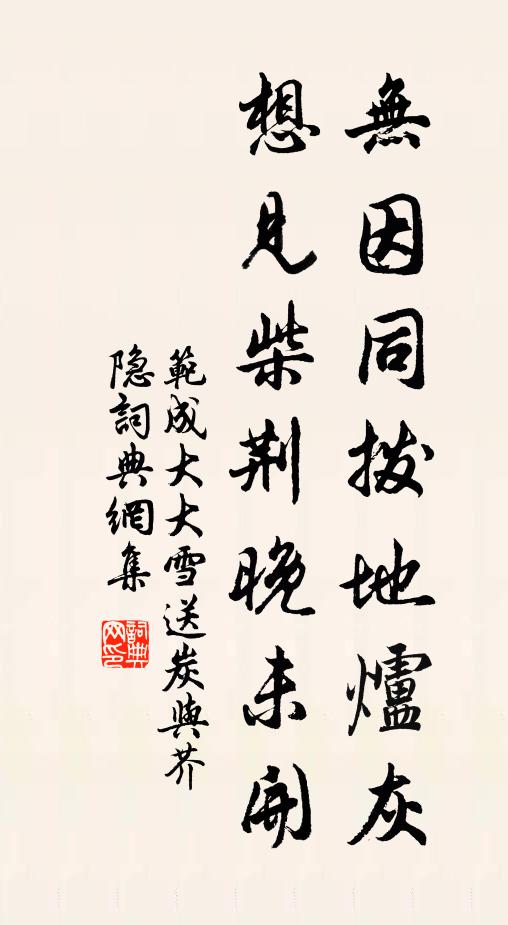 無因同撥地爐灰
想見柴荊晚未開
範成大大雪送炭與芥
隐詞典網集
詞典网印